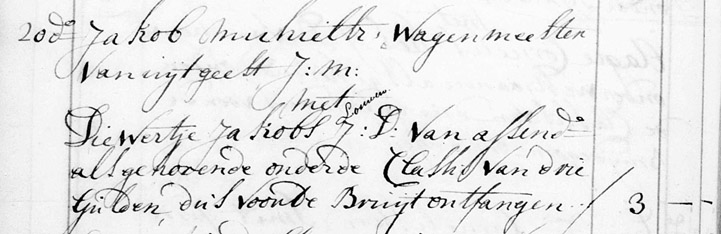 20do Jakob Wagenmeester
van uytgeest J: M:
met
Louwen
Diewertje Jakobs J: D: van assendo
als gehorende onder de Classis van drie
Gulden, dus voor de Bruyt ontfangen / 3 — —